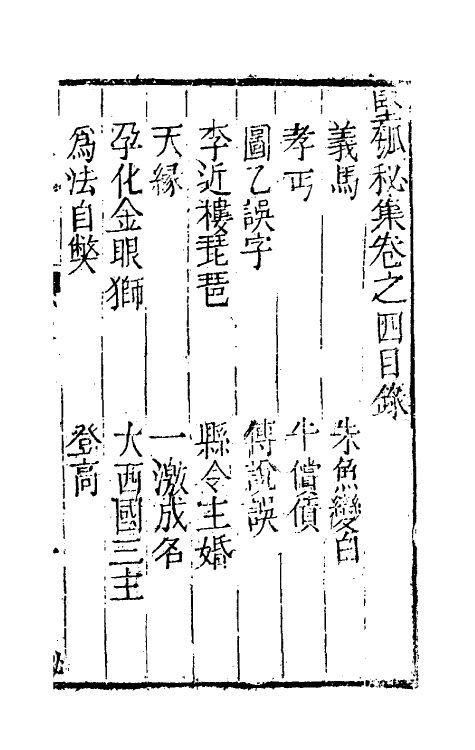 堅瓠秘集卷之四目錄
義馬　朱魚變白
孝丐　牛償債
圖乙誤字　傅說誤
李近樓琵琶　縣令主婚
天緣　一激成名
孕化金眼獅　大西國三主
為法自弊　登高